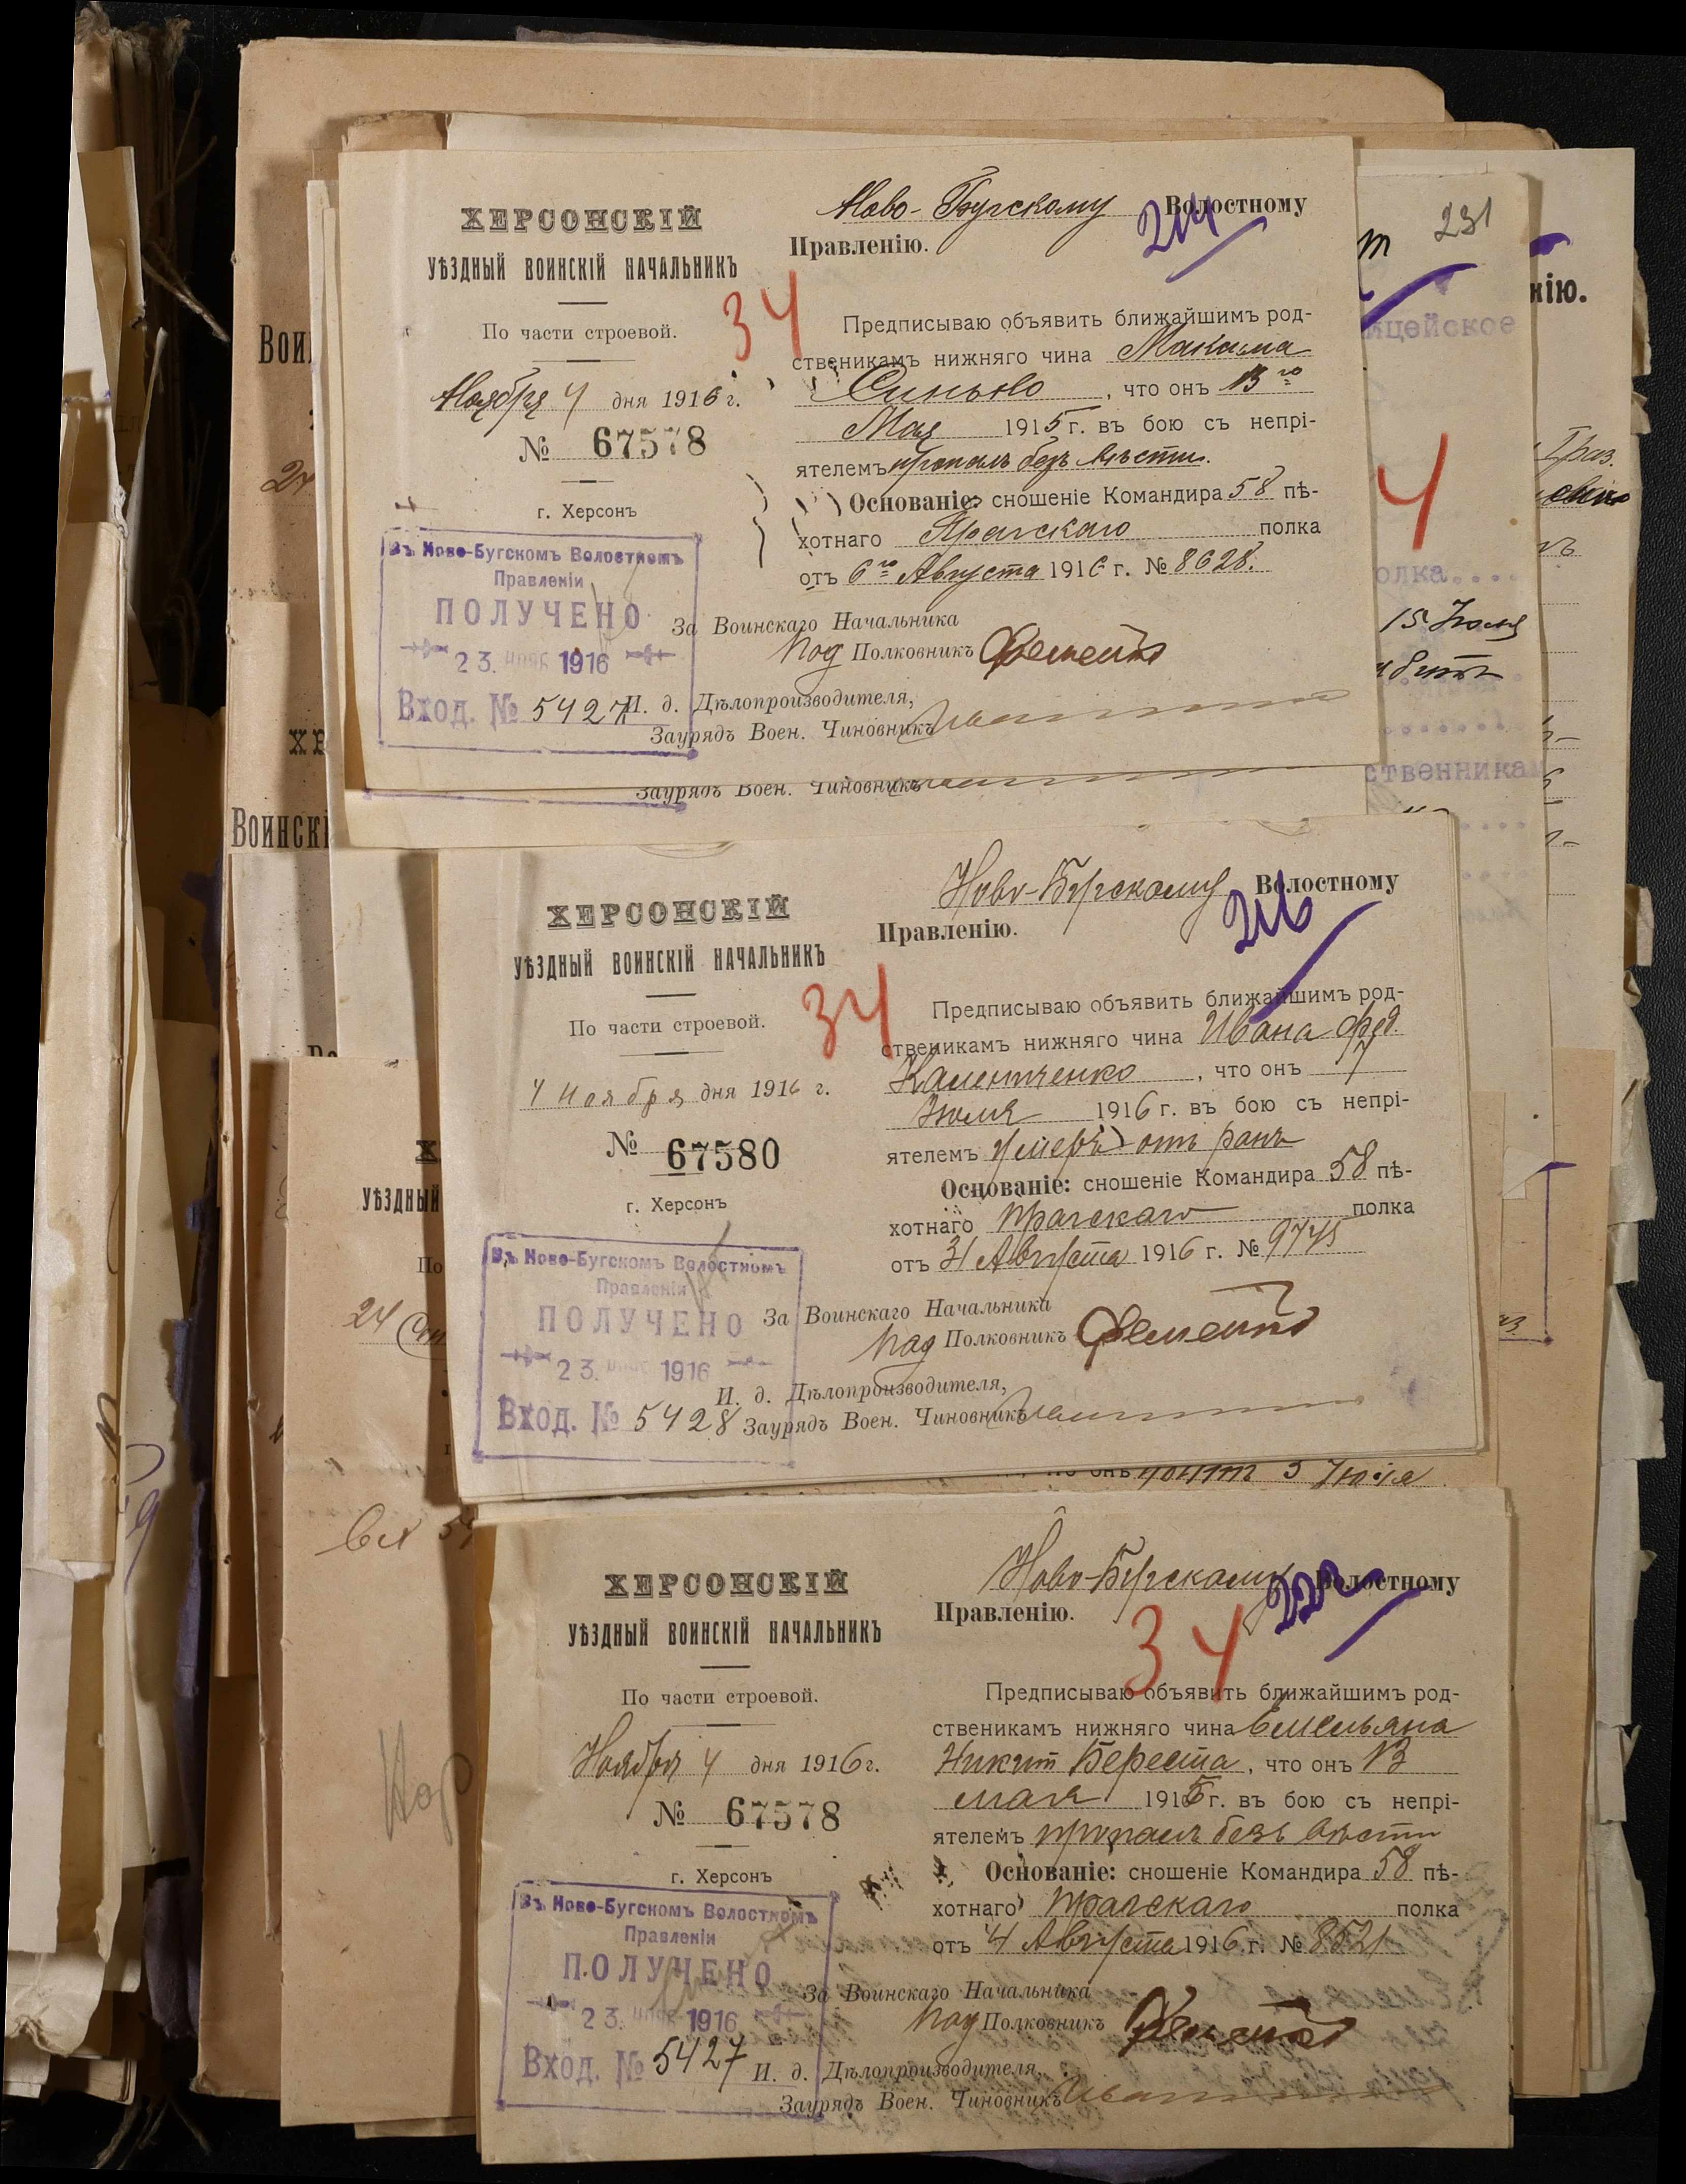 ХЕРСОНСКІЙ
УѢЗДНЫЙ ВОИНСКІЙ НАЧАЛЬНИКЪ
По части строевой.
Ноября 4 дня 1916 г.
№ 67578
г. Херсонъ
Въ Ново-Бугскомъ Волостномъ
Правленіи
ПОЛУЧЕНО
23. НОЯБ 1916
Вход. № 5427
34
Ново-Бугскому Волостному
214
Правленію.
Предписываю объявить ближайшимъ род-
ственикамъ нижняго чина Максима
Синько, что онъ 13го
Мая 1915 г. въ бою съ непрі-
ятелемъ пропалъ безъ вѣсти.
Основаніе: сношеніе Командира 58 пѣ-
хотнаго Прагскаго полка
отъ 6го Августа 1916 г. № 8628.
За Воинскаго Начальника
Под Полковникъ
И. д. Дѣлопроизводителя,
Заурядъ Воен. Чиновникъ
Заурядъ Воен. Чиновникъ
231
нію.
ицейское
4
олка....
15 Іюля
ственника
Вои
24
ХЕ
Воинскі
ХЕРСОНСКІЙ
УѢЗДНЫЙ ВОИНСКІЙ НАЧАЛЬНИКЪ
По части строевой.
4 Ноября дня 1916 г.
№ 67580
г. Херсонъ
Въ Ново-Бугскомъ Волостномъ
Правленіи
ПОЛУЧЕНО
23. 1916
Вход. № 5428
34
Ново-Бугскому Волостному
216
Правленію.
Предписываю объявить ближайшимъ род-
ственикамъ нижняго чина Ивана Фед.
Калениченко, что онъ 7
Іюля 1916 г. въ бою съ непрі-
ятелемъ умеръ отъ ранъ
Основаніе: сношеніе Командира 58 пѣ-
хотнаго Прагскаго полка
отъ 31 Августа 1916 г. № 9745
За Воинскаго Начальника
Под Полковникъ
И. д. Дѣлопроизводителя,
Заурядъ Воен. Чиновникъ
Х
УѢЗДНЫЙ
По
24 Сен
онъ убит 5 Іюля
ХЕРСОНСКІЙ
УѢЗДНЫЙ ВОИНСКІЙ НАЧАЛЬНИКЪ
По части строевой.
Ноября 4 дня 1916 г.
№ 67578
г. Херсонъ
Въ Ново-Бугскомъ Волостномъ
Правленіи
ПОЛУЧЕНО
23. НОЯБ 1916
Вход. № 5427
34
Ново-Бугскому Волостному
222
Правленію.
Предписываю объявить ближайшимъ род-
ственикамъ нижняго чина Емельяна
Никит Береста, что онъ 13
мая 1915 г. въ бою съ непрі-
ятелемъ пропалъ безъ вѣсти
Основаніе: сношеніе Командира 58 пѣ-
хотнаго Прагскаго полка
отъ 4 Августа 1916 г. № 8521
За Воинскаго Начальника
Под Полковникъ
И. д. Дѣлопроизводителя,
Заурядъ Воен. Чиновникъ